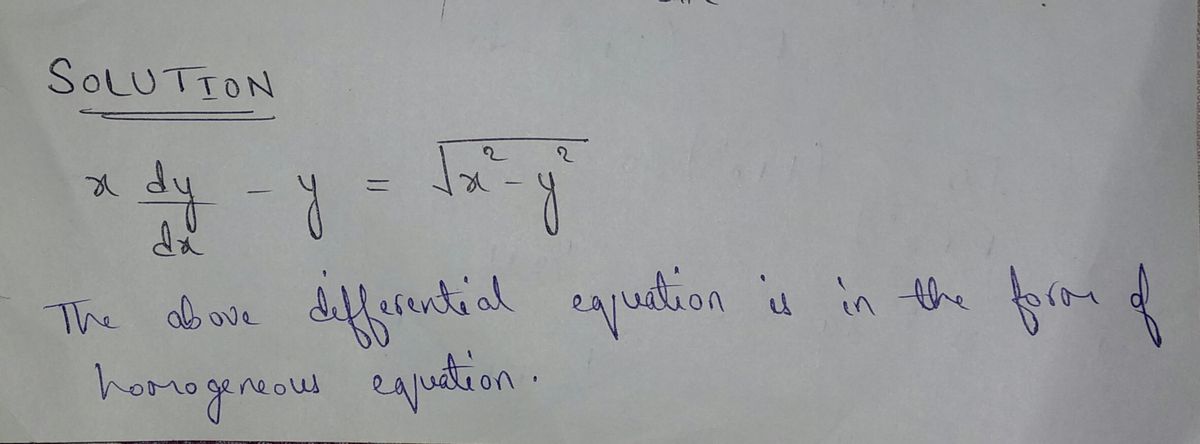 SOLUTION
x dy/dx - y = √x²-y²
The above differential equation is in the form of
homogeneous equation.